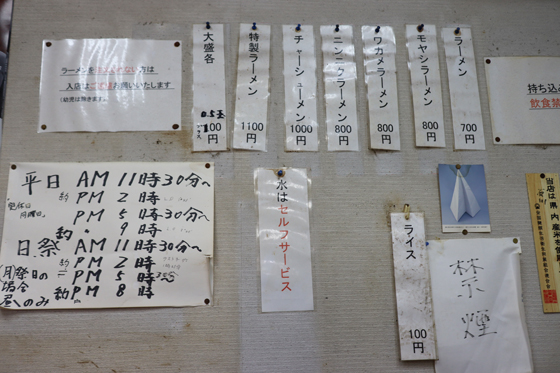 ラーメンを
方は
入店は
お願いいたします
(幼児は除きます。)
大盛各
0.5玉
100円
特製ラーメン
1100円
チャーシューメン
1000円
ニンニクラーメン
800円
ワカメラーメン
800円
モヤシラーメン
800円
ラーメン
700円
持ち込み
飲食禁
平日 AM 11時30分〜
約 PM 2時
PM 5時30分〜
約 〃 9時
日祭 AM 11時30分〜
約 PM 2時
PM 5時
約 PM 8時
(月)祭日の
場合
昼のみ
水はセルフサービス
ライス
100円
禁煙
当店は県内産米を